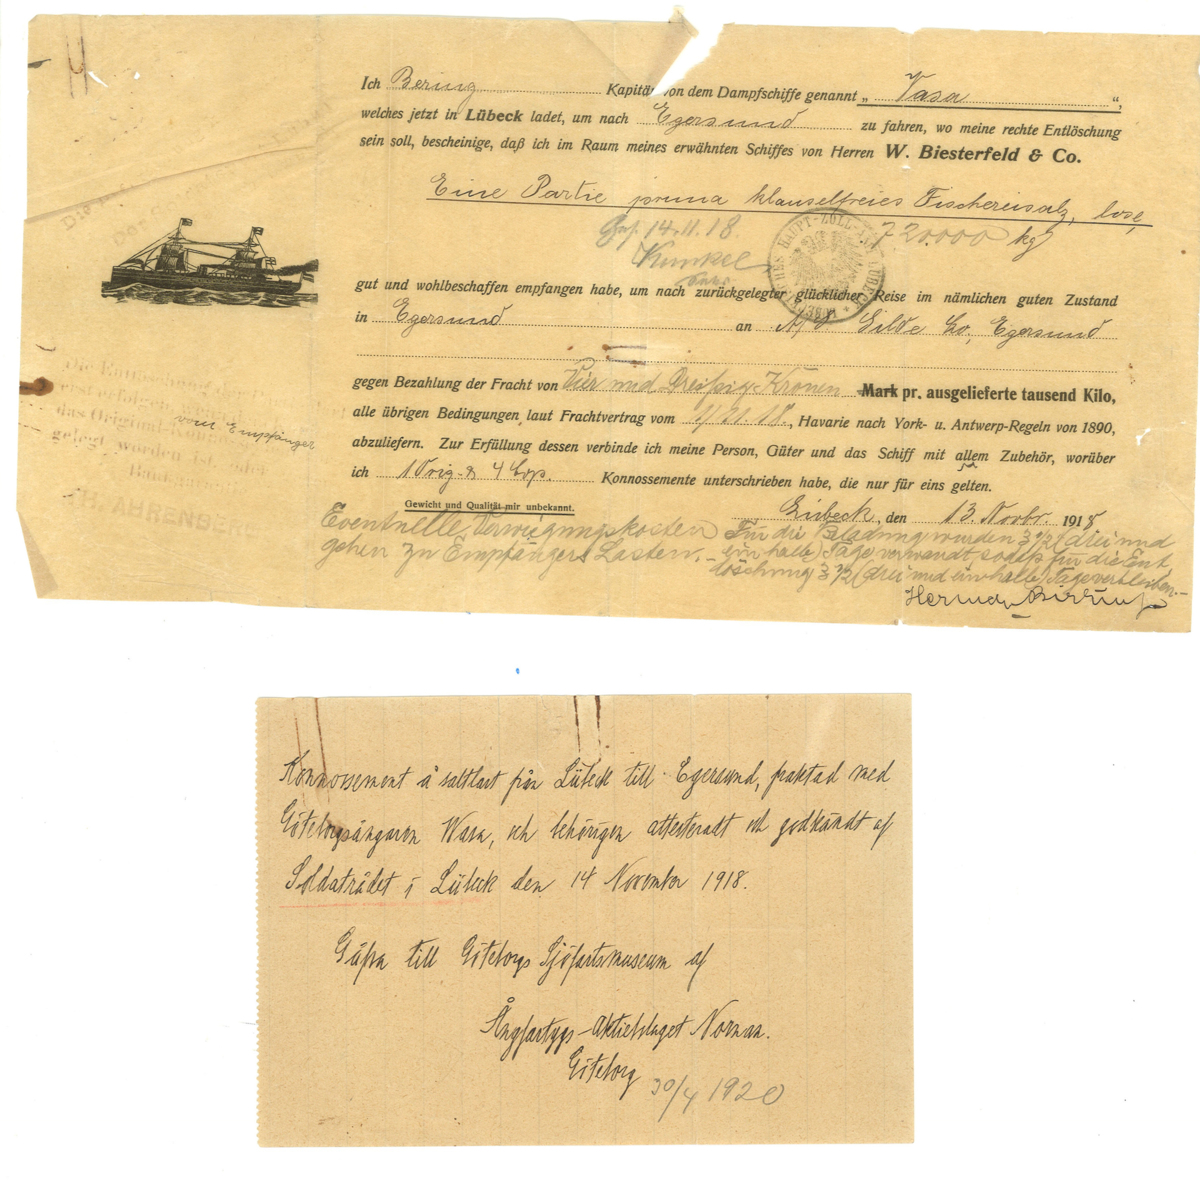 Ich Bering Kapitän von dem Dampfschiffe genannt „ Vasa “,
welches jetzt in Lübeck ladet, um nach Egersund zu fahren, wo meine rechte Entlöschung
sein soll, bescheinige, daß ich im Raum meines erwähnten Schiffes von Herren W. Biesterfeld & Co.
Eine Partie prima klauselfreies Fischereisalz, lose,
720.000 kg
14.11.18.
Kunkel
HAUPT-ZOLL-AMT LÜBECK
gut und wohlbeschaffen empfangen habe, um nach zurückgelegter glücklicher Reise im nämlichen guten Zustand
in Egersund an A/S Gilde Co, Egersund
gegen Bezahlung der Fracht von Vier und Dreißig Kronen Mark pr. ausgelieferte tausend Kilo,
alle übrigen Bedingungen laut Frachtvertrag vom 1/11 18., Havarie nach York- u. Antwerp-Regeln von 1890,
abzuliefern. Zur Erfüllung dessen verbinde ich meine Person, Güter und das Schiff mit allem Zubehör, worüber
ich 1 Orig. & 4 Cop. Konnossemente unterschrieben habe, die nur für eins gelten.
Gewicht und Qualität mir unbekannt.
Lübeck, den 13. Novbr. 1918
Eventuelle Verwiegungskosten
gehen zu Empfängers Lasten.
Für die Beladung wurden 3 1/2 (drei und
ein halbe) Tage verwandt, sodass für die Ent
löschung 3 1/2 (drei und ein halbe) Tage verbleiben.
Die Entlöschung
erst erfolgen
das Original-Konn
vom Empfänger
gelegt worden ist, oder
Bank
H. AHRENS
Konnossement å saltlast från Lübeck till Egersund, fraktad med
Göteborgsångaren Wasa, och behörigen attesteradt och godkändt af
Soldatrådet i Lübeck den 14 November 1918.
Gåfva till Göteborgs Sjöfartsmuseum af
Ångfartygs-Aktiebolaget Nornan.
Göteborg 30/4 1920